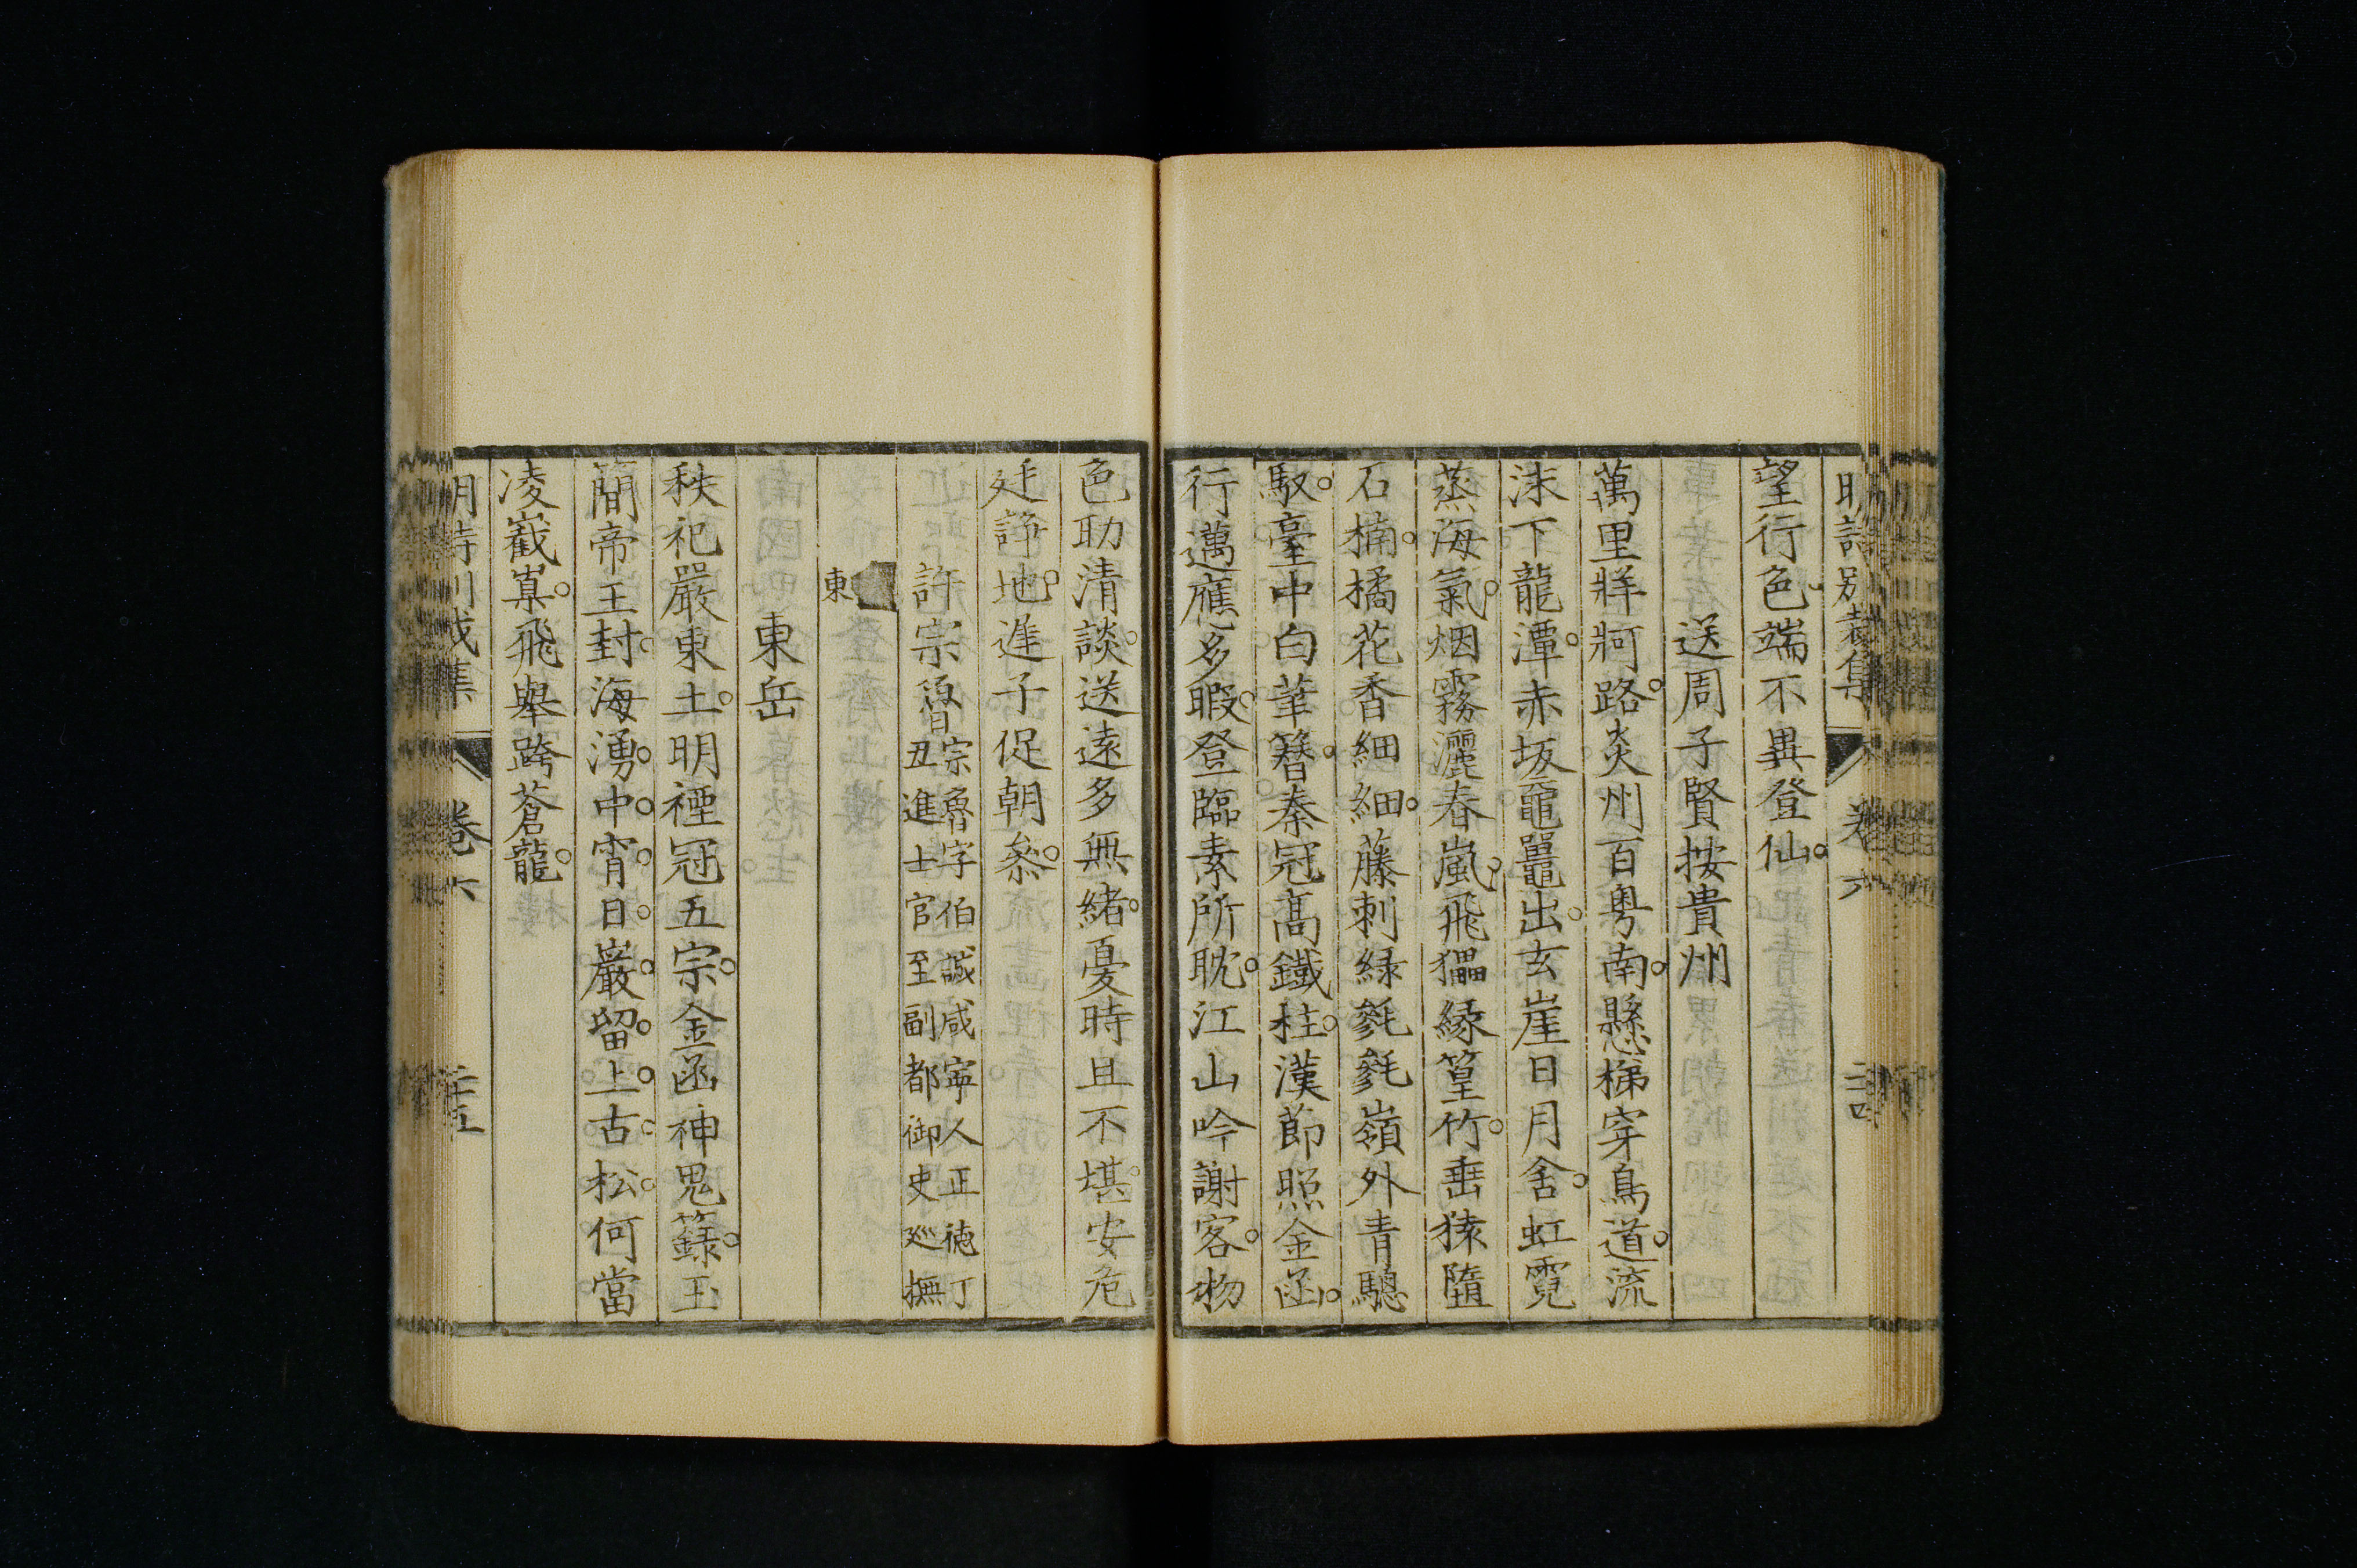 明詩別裁集 卷六
望行色端不異登仙
送周子賢按貴州
萬里牂牁路炎州百粤南懸梯穿鳥道流
沫下龍潭赤坂黿鼉出玄崖日月含虹霓
蒸海氣烟霧灑春嵐飛猵緣篁竹垂猿墮
石楠橘花香細細藤刺綠毿毿嶺外青驄
馭臺中白筆簪秦冠高鐵柱漢節照金函
行邁應多暇登臨素所耽江山吟謝客物
色助清談送遠多無緒憂時且不堪安危
廷諍地進子促朝參
許宗魯 宗魯字伯誠咸寧人正德丁
丑進士官至副都御史巡撫
東
東岳
秩祀嚴東土明禋冠五宗金函神鬼籙玉
簡帝王封海湧中宵日巖留上古松何當
凌巀嶪飛舉跨蒼龍
明詩別裁集 卷六 二十五